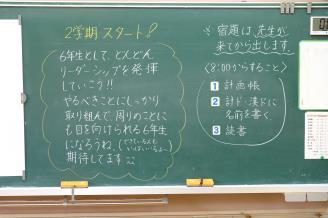 2学期 スタート!
6年生として、どんどん
リーダーシップを発揮
していこう!!
やるべきことにしっかり
取り組んで、周りのことに
も目を向けられる6年生
になろうね。(できている人もいっぱいいるよー)
期待してます
※宿題は先生が
来てから出します。
<8:00からすること>
1 計画帳
2 計ド・漢ドに
名前を書く
3 読書